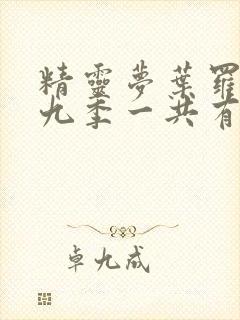 精靈夢葉羅
九季一共有
卓九成